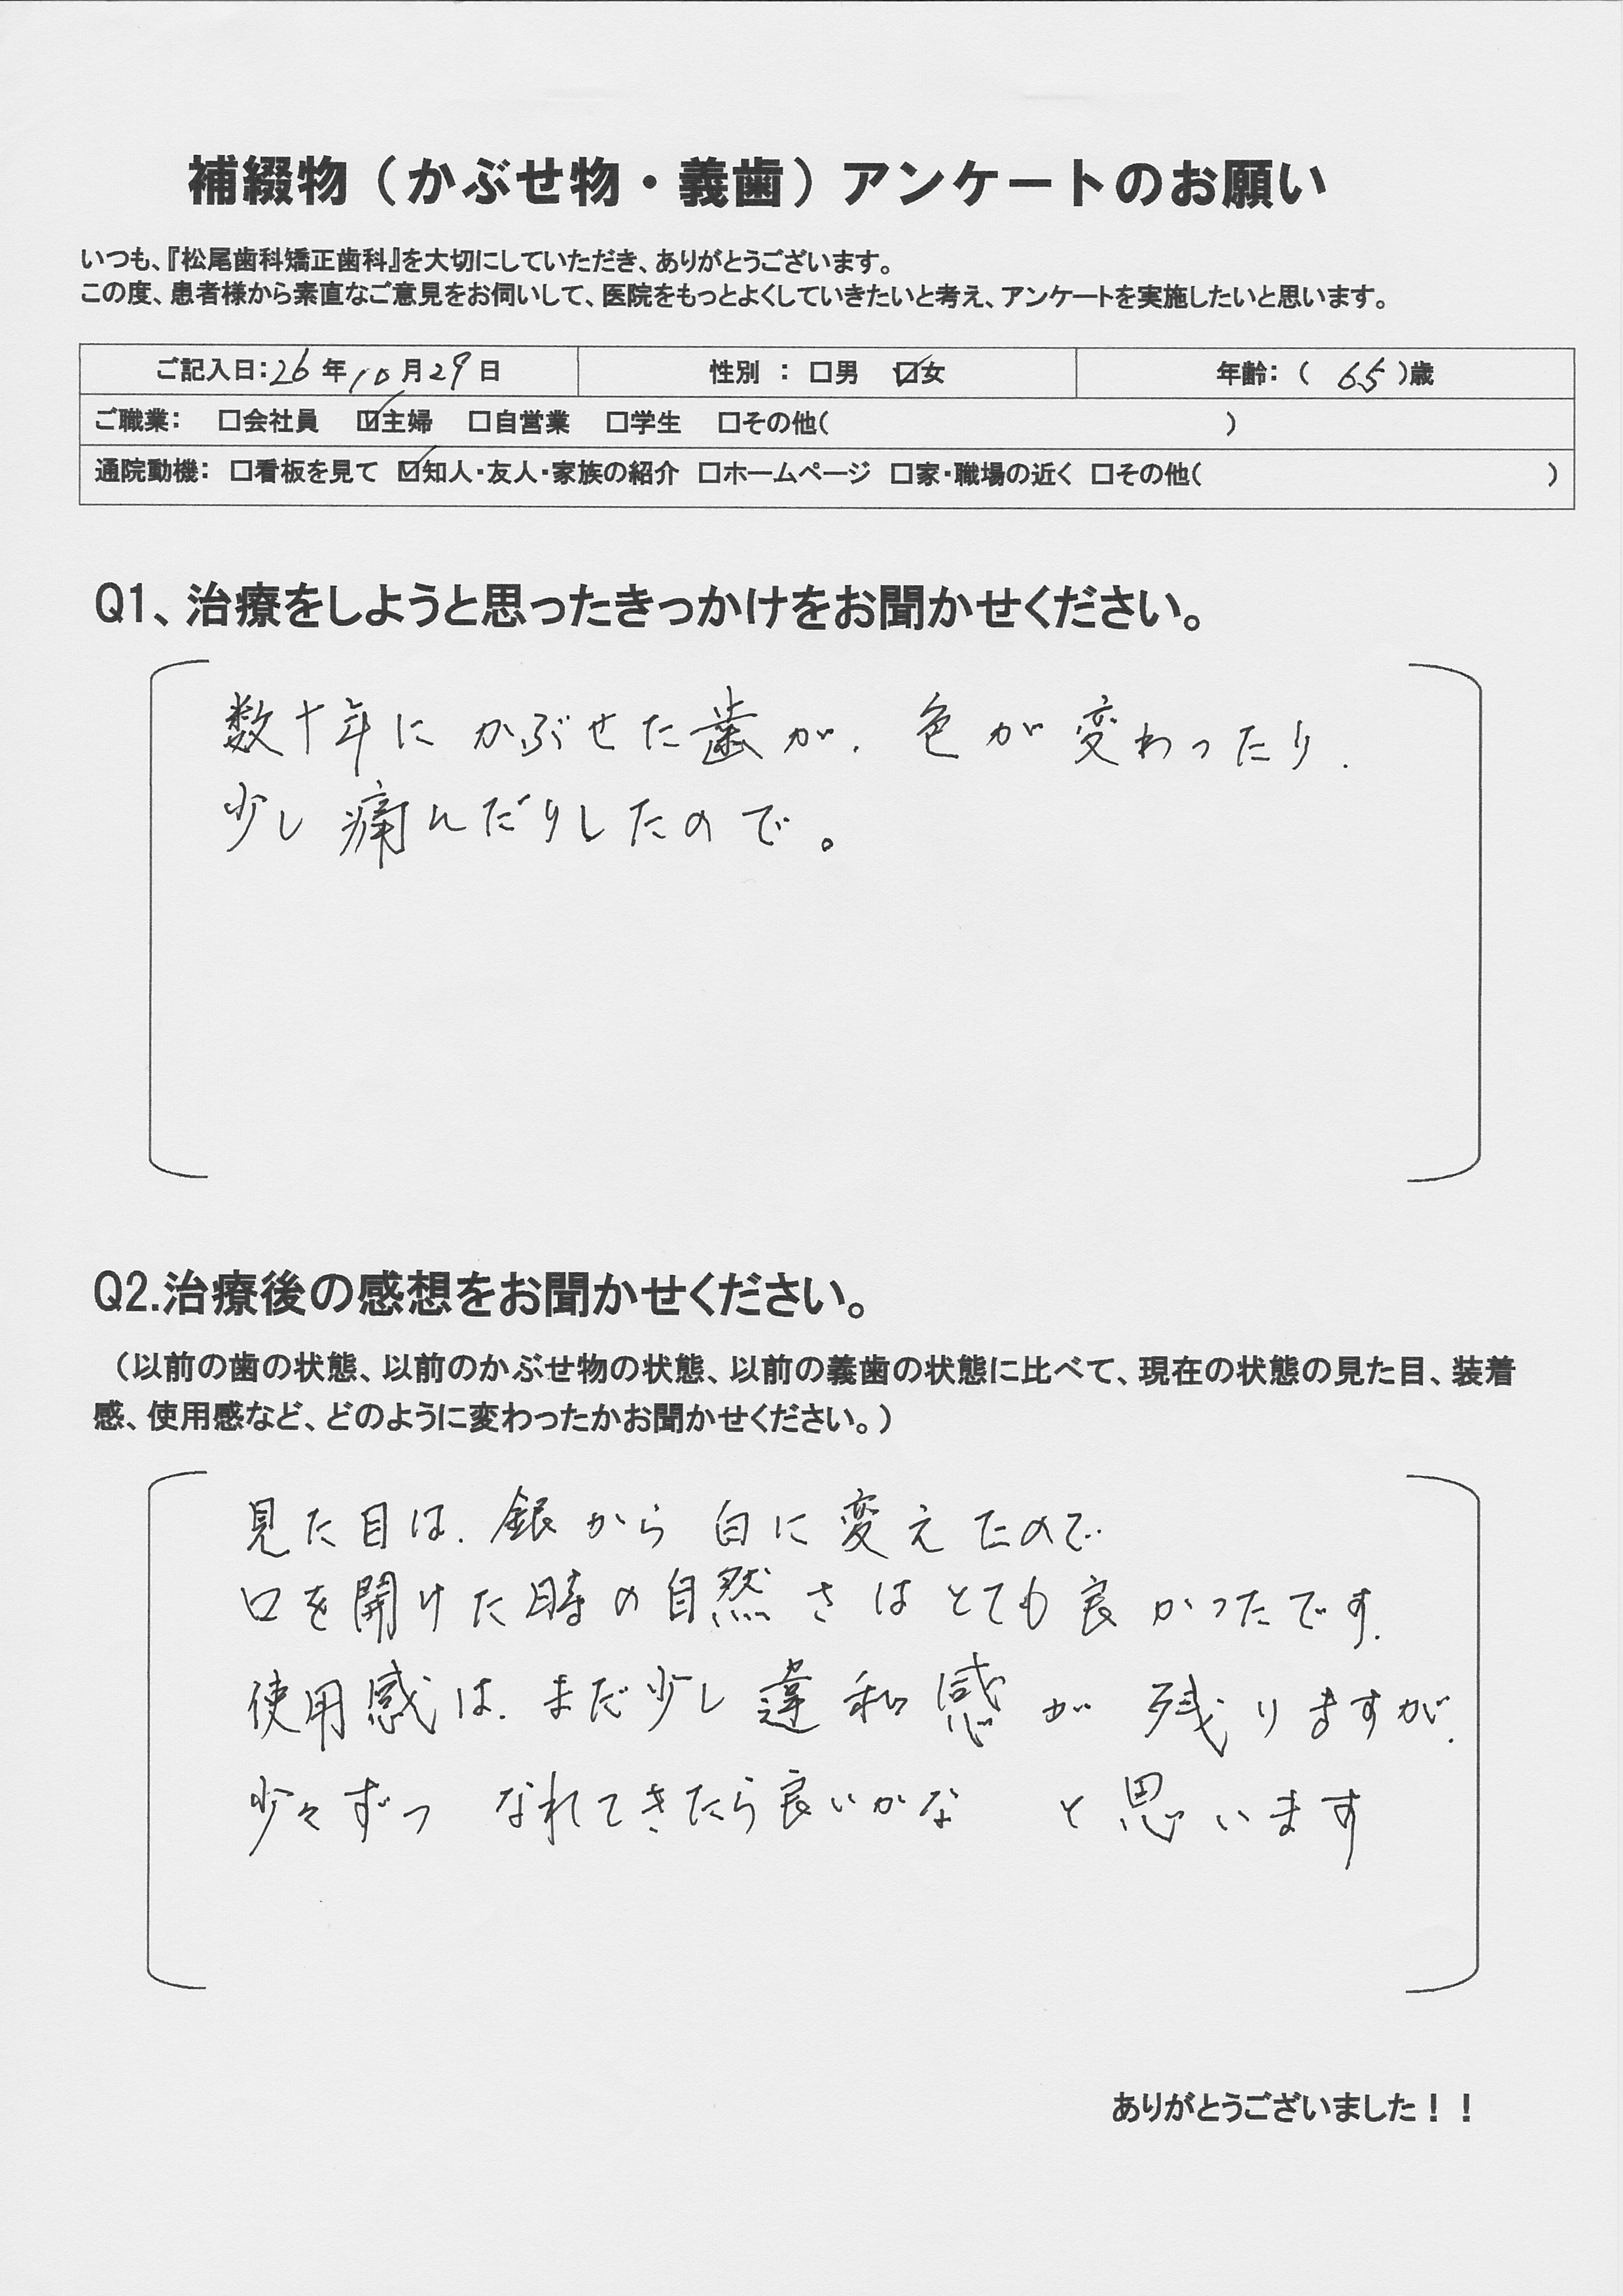 補綴物（かぶせ物・義歯）アンケートのお願い
いつも、『松尾歯科矯正歯科』を大切にしていただき、ありがとうございます。
この度、患者様から素直なご意見をお伺いして、医院をもっとよくしていきたいと考え、アンケートを実施したいと思います。
ご記入日：26年10月29日 性別 ： □男 ☑女 年齢：（ 65 ）歳
ご職業： □会社員 ☑主婦 □自営業 □学生 □その他（ ）
通院動機： □看板を見て ☑知人・友人・家族の紹介 □ホームページ □家・職場の近く □その他（ ）
Q1、治療をしようと思ったきっかけをお聞かせください。
数十年に かぶせた歯が、色が変わったり、
少し痛んだりしたので。
Q2.治療後の感想をお聞かせください。
（以前の歯の状態、以前のかぶせ物の状態、以前の義歯の状態に比べて、現在の状態の見た目、装着
感、使用感など、どのように変わったかお聞かせください。）
見た目は、銀から白に変えたので
口を開けた時の自然さはとても良かったです。
使用感は、まだ少し違和感が残りますが、
少々ずつ なれてきたら良いかな と思います
ありがとうございました！！